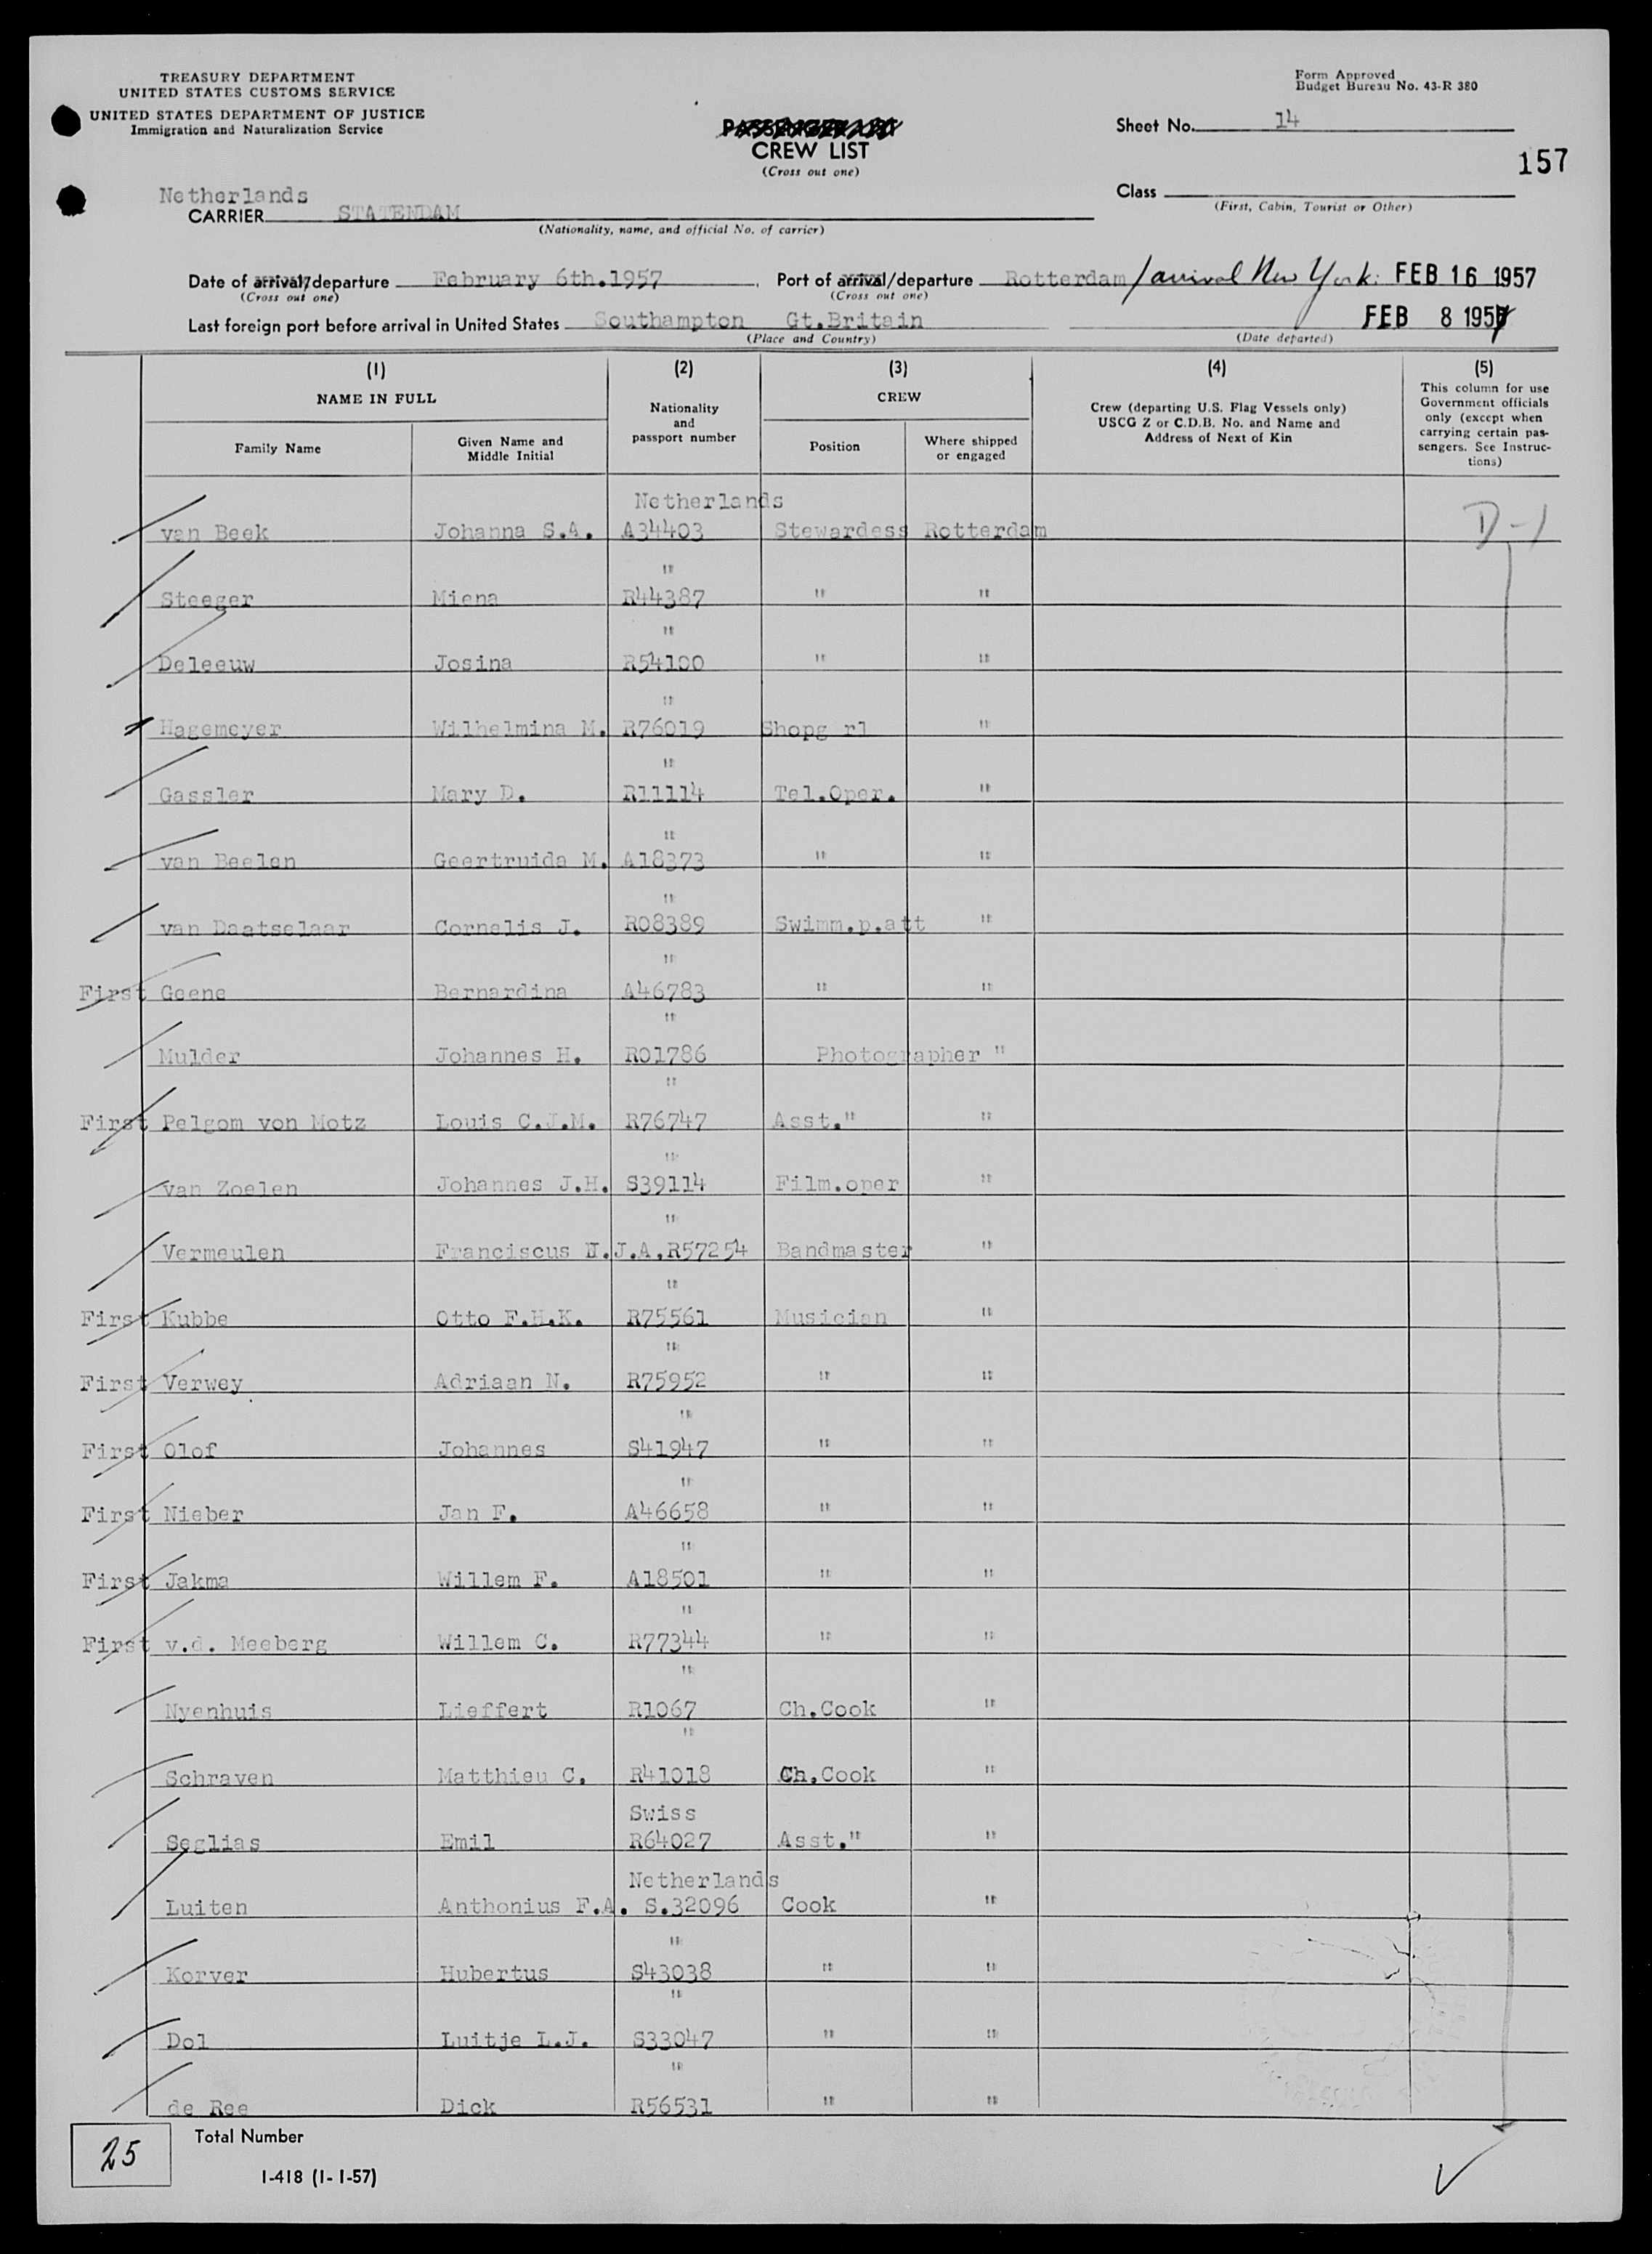 TREASURY DEPARTMENT
UNITED STATES CUSTOMS SERVICE
UNITED STATES DEPARTMENT OF JUSTICE
Immigration and Naturalization Service
Form Approved
Budget Bureau No. 43-R 380
PASSENGER LIST
CREW LIST
(Cross out one)
Sheet No. 14
157
Class
(First, Cabin, Tourist or Other)
Netherlands
CARRIER STATENDAM
(Nationality, name, and official No. of carrier)
Date of arrival/departure February 6th.1957 Port of arrival/departure Rotterdam /arrival New York: FEB 16 1957
(Cross out one) (Cross out one)
Last foreign port before arrival in United States Southampton Gt.Britain FEB 8 1957
(Place and Country) (Date departed)
(1) (2) (3) (4) (5)
NAME IN FULL
Nationality and passport number
CREW
Crew (departing U.S. Flag Vessels only)
USCG Z or C.D.B. No. and Name and
Address of Next of Kin
This column for use
Government officials
only (except when
carrying certain pas-
sengers. See Instruc-
tions)
Family Name
Given Name and
Middle Initial
Position
Where shipped
or engaged
Netherlands
van Beek Johanna S.A. A34403 Stewardess Rotterdam D-1
"
Steeger Miena R44387 " "
"
Deleeuw Josina R54100 " "
"
Hagemeyer Wilhelmina M. R76019 Shopg rl "
"
Gassler Mary D. R11114 Tel.Oper. "
"
van Beelen Geertruida M. A18373 " "
"
van Daatselaar Cornelis J. R08389 Swimm.p.att "
"
First Geene Bernardina A46783 " "
"
Mulder Johannes H. R01786 Photographer "
"
First Pelgom von Motz Louis C.J.M. R76747 Asst." "
"
van Zoelen Johannes J.H. S39114 Film.oper "
"
Vermeulen Franciscus H.J.A.R57254 Bandmaster "
"
First Kubbe Otto F.H.K. R75561 Musician "
"
First Verwey Adriaan N. R75952 " "
"
First Olof Johannes S41947 " "
"
First Nieber Jan F. A46658 " "
"
First Jakma Willem F. A18501 " "
"
First v.d. Meeberg Willem C. R77344 " "
"
Nyenhuis Lieffert R1067 Ch.Cook "
"
Schraven Matthieu C. R41018 Ch.Cook "
Swiss
Seglias Emil R64027 Asst." "
Netherlands
Luiten Anthonius F.A. S.32096 Cook "
"
Korver Hubertus S43038 " "
"
Dol Luitje L.J. S33047 " "
"
de Ree Dick R56531 " "
25 Total Number
I-418 (1-1-57)